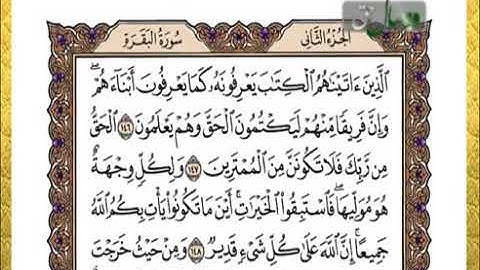 سُورَةُ الْبَقَرَةِ الجُزْءُ الثَّانِي
الَّذِينَ ءَاتَيْنَٰهُمُ الْكِتَٰبَ يَعْرِفُونَهُۥ كَمَا يَعْرِفُونَ أَبْنَآءَهُمْ ۖ
وَإِنَّ فَرِيقًا مِّنْهُمْ لَيَكْتُمُونَ الْحَقَّ وَهُمْ يَعْلَمُونَ ١٤٦ الْحَقُّ
مِن رَّبِّكَ فَلَا تَكُونَنَّ مِنَ الْمُمْتَرِينَ ١٤٧ وَلِكُلٍّ وِجْهَةٌ
هُوَ مُوَلِّيهَا ۖ فَاسْتَبِقُوا۟ الْخَيْرَٰتِ ۚ أَيْنَ مَا تَكُونُوا۟ يَأْتِ بِكُمُ اللَّهُ
جَمِيعًا ۚ إِنَّ اللَّهَ عَلَىٰ كُلِّ شَىْءٍ قَدِيرٌ ١٤٨ وَمِنْ حَيْثُ خَرَجْتَ